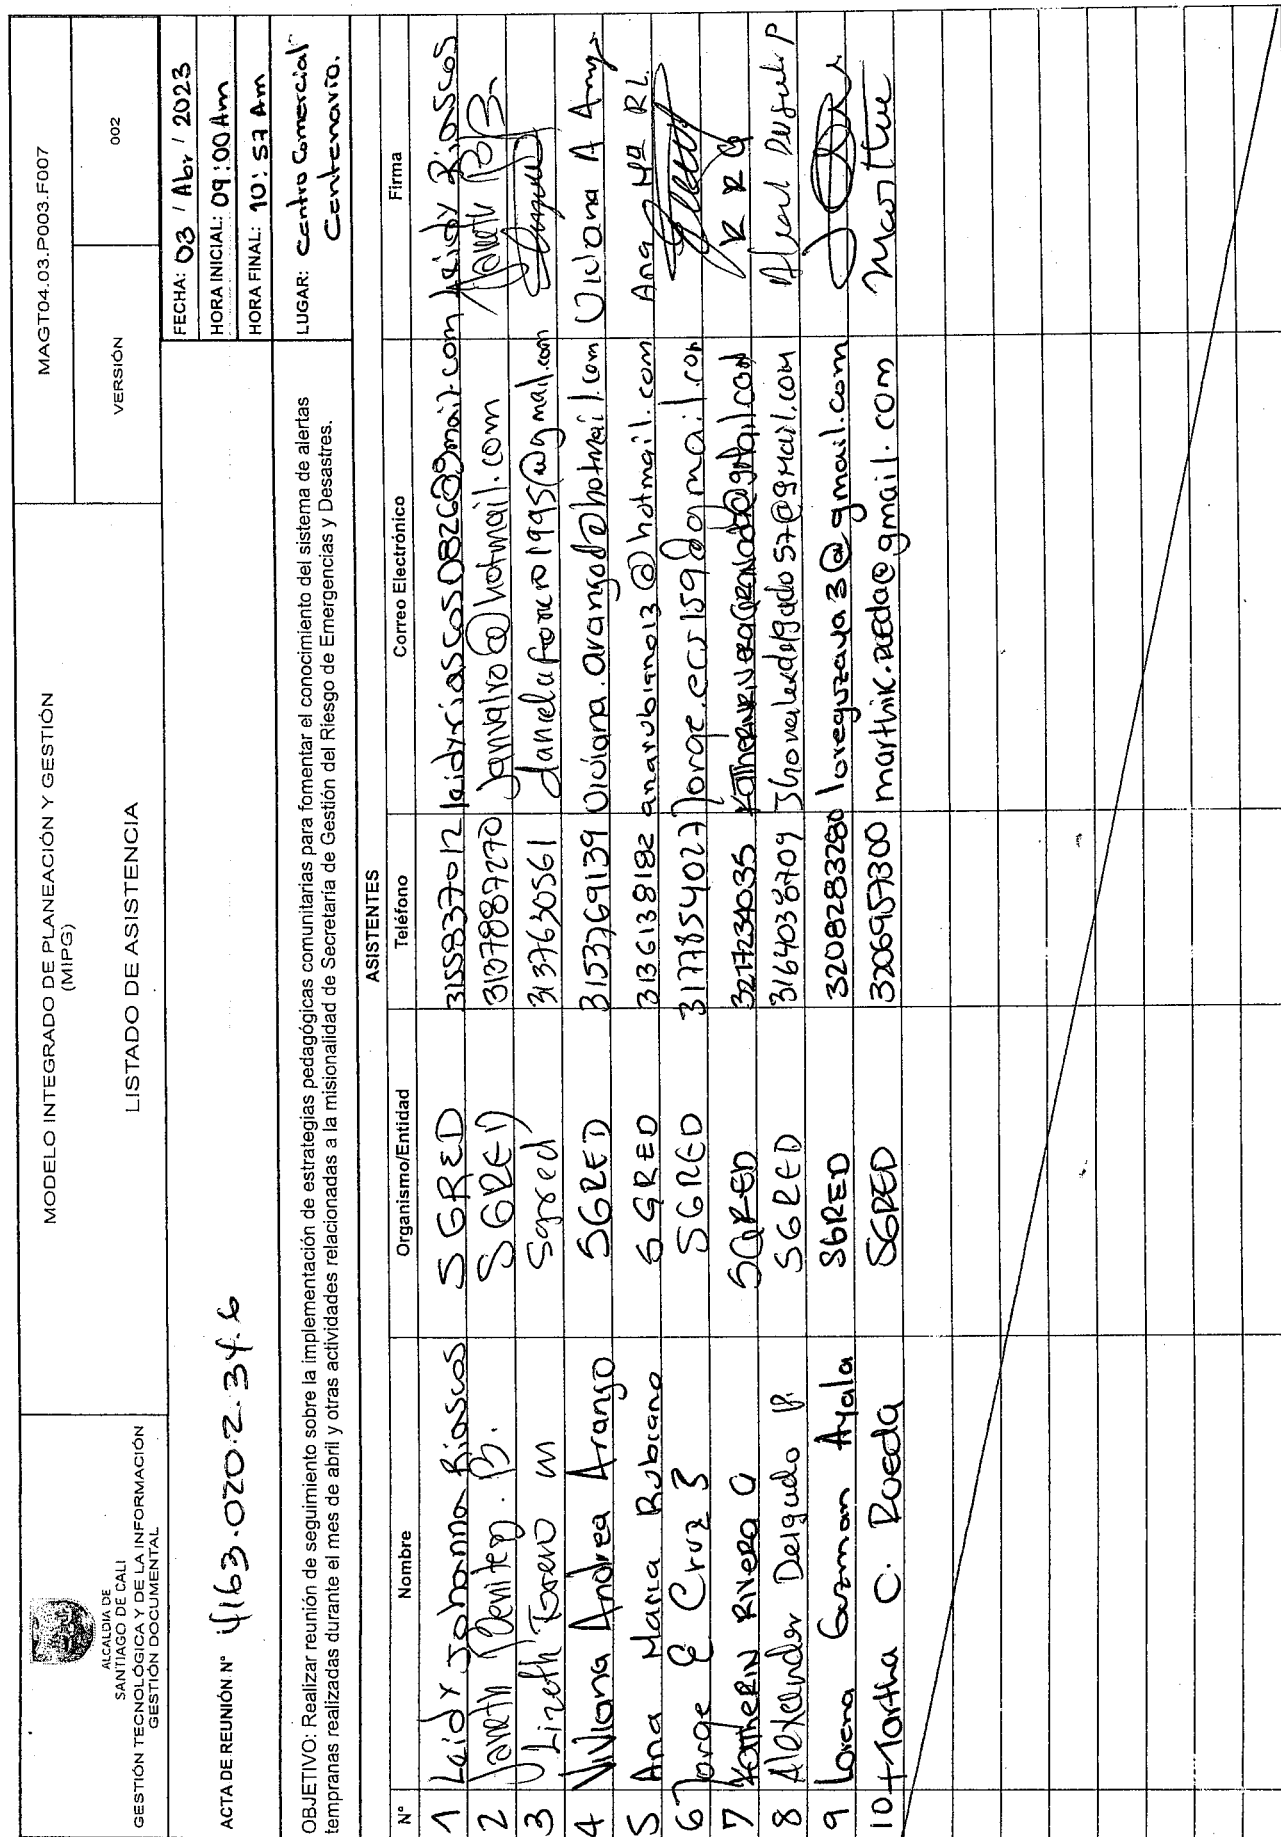 ALCALDIA DE
SANTIAGO DE CALI
GESTIÓN TECNOLÓGICA Y DE LA INFORMACIÓN
GESTIÓN DOCUMENTAL
MODELO INTEGRADO DE PLANEACIÓN Y GESTIÓN
(MIPG)
LISTADO DE ASISTENCIA
MAGT04.03.P003.F007
VERSIÓN 002
ACTA DE REUNIÓN N° 4163.020.2.34.6
FECHA: 03 / Abr / 2023
HORA INICIAL: 09:00 Am
HORA FINAL: 10:57 Am
OBJETIVO: Realizar reunión de seguimiento sobre la implementación de estrategias pedagógicas comunitarias para fomentar el conocimiento del sistema de alertas
tempranas realizadas durante el mes de abril y otras actividades relacionadas a la misionalidad de Secretaría de Gestión del Riesgo de Emergencias y Desastres.
LUGAR: Centro Comercial
Centenario.
ASISTENTES
N° Nombre Organismo/Entidad Teléfono Correo Electrónico Firma
1 Leidy Johanna Riascos SGRED 3155837012 leidyriascos0826@gmail.com Leidy Riascos
2 Janeth Benitez B. SGRED 3137887270 janvalro@hotmail.com
3 Lizeth Forero M Sgred 3137630561 danielaforero1995@gmail.com
4 Viviana Andrea Arango SGRED 3153769139 viviana.arango@hotmail.com Viviana A Arango
5 Ana Maria Rubiano SGRED 3136138182 anarubiano13@hotmail.com Ana Mª RL.
6 Jorge E Cruz SGRED 3177854027 jorge.ecr159@gmail.com
7 Katherin Rivera G SGRED 3217234035 Katherinriveragranada@gmail.com K R G
8 Alexander Delgado P. SGRED 3164038709 @gmail.com
9 Lorena Guzman Ayala SGRED 3208283280 loreguzaya3@gmail.com
10 Martha C. Rueda SGRED 3206957300 marthik.rueda@gmail.com